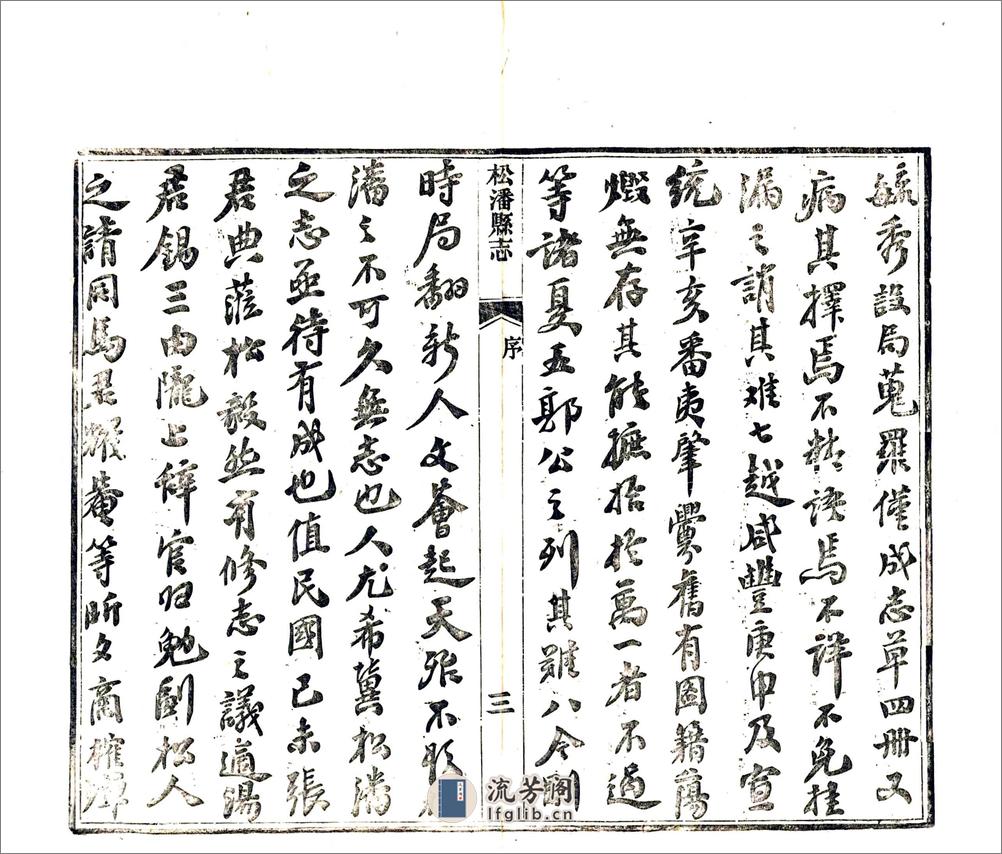 毓秀設局蒐羅僅成志草四冊又
病其擇焉不精語焉不詳不免挂
漏之誚其難七越咸豐庚申及宣
統辛亥番夷肇釁舊有圖籍蕩
燬無存其能摭拾於萬一者不過
等諸夏五郭公之列其難八今則
松潘縣志
序
三
時局翻新人文薈起天殆不欲
潘之不可久無志也人尤希冀松潘
之志亟待有成也值民國己未張
君典蒞松毅然有修志之議適湯
君錫三由隴上辭官归勉劻松人
之請同馬君耀菴等昕夕商榷
流芳阁
lfglib.cn